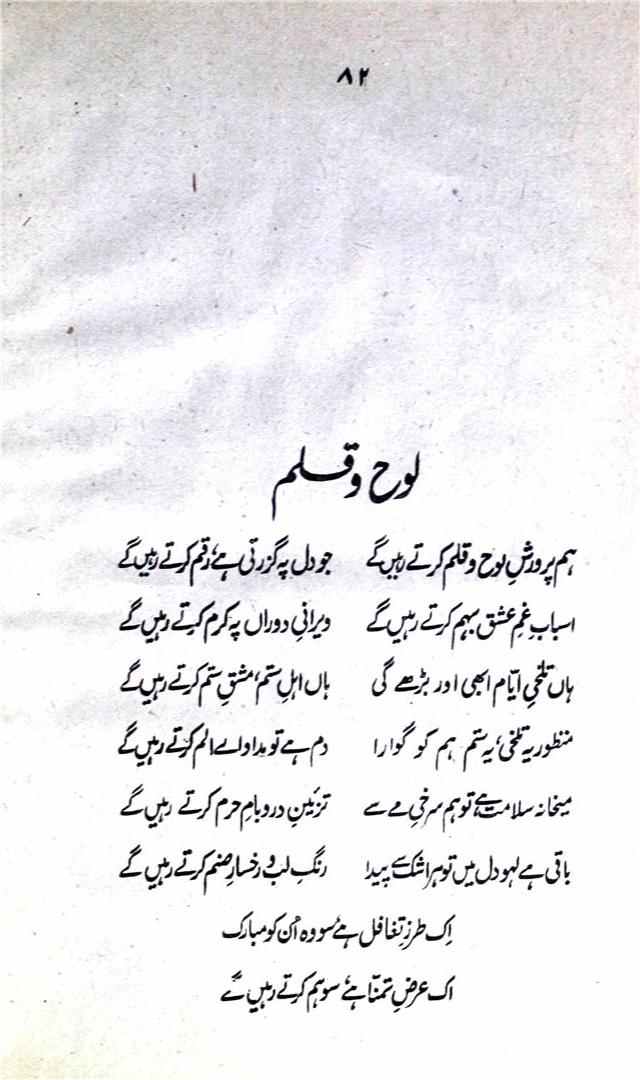 ۸۲
لوح و قلم
ہم پرورشِ لوح و قلم کرتے رہیں گے جو دل پہ گزرتی ہے رقم کرتے رہیں گے
اسبابِ غمِ عشق بہم کرتے رہیں گے ویرانیِ دوراں پہ کرم کرتے رہیں گے
ہاں تلخیِ ایّام ابھی اور بڑھے گی ہاں اہلِ ستم، مشقِ ستم کرتے رہیں گے
منظور یہ تلخی، یہ ستم ہم کو گوارا دم ہے تو مداوائے الم کرتے رہیں گے
میخانہ سلامت ہے تو ہم سرخیِ مے سے تزئینِ در و بامِ حرم کرتے رہیں گے
باقی ہے لہو دل میں تو ہر اشک سے پیدا رنگِ لب و رخسارِ صنم کرتے رہیں گے
اِک طرزِ تغافل ہے سو وہ اُن کو مبارک
اک عرضِ تمنّا ہے، سو ہم کرتے رہیں گے